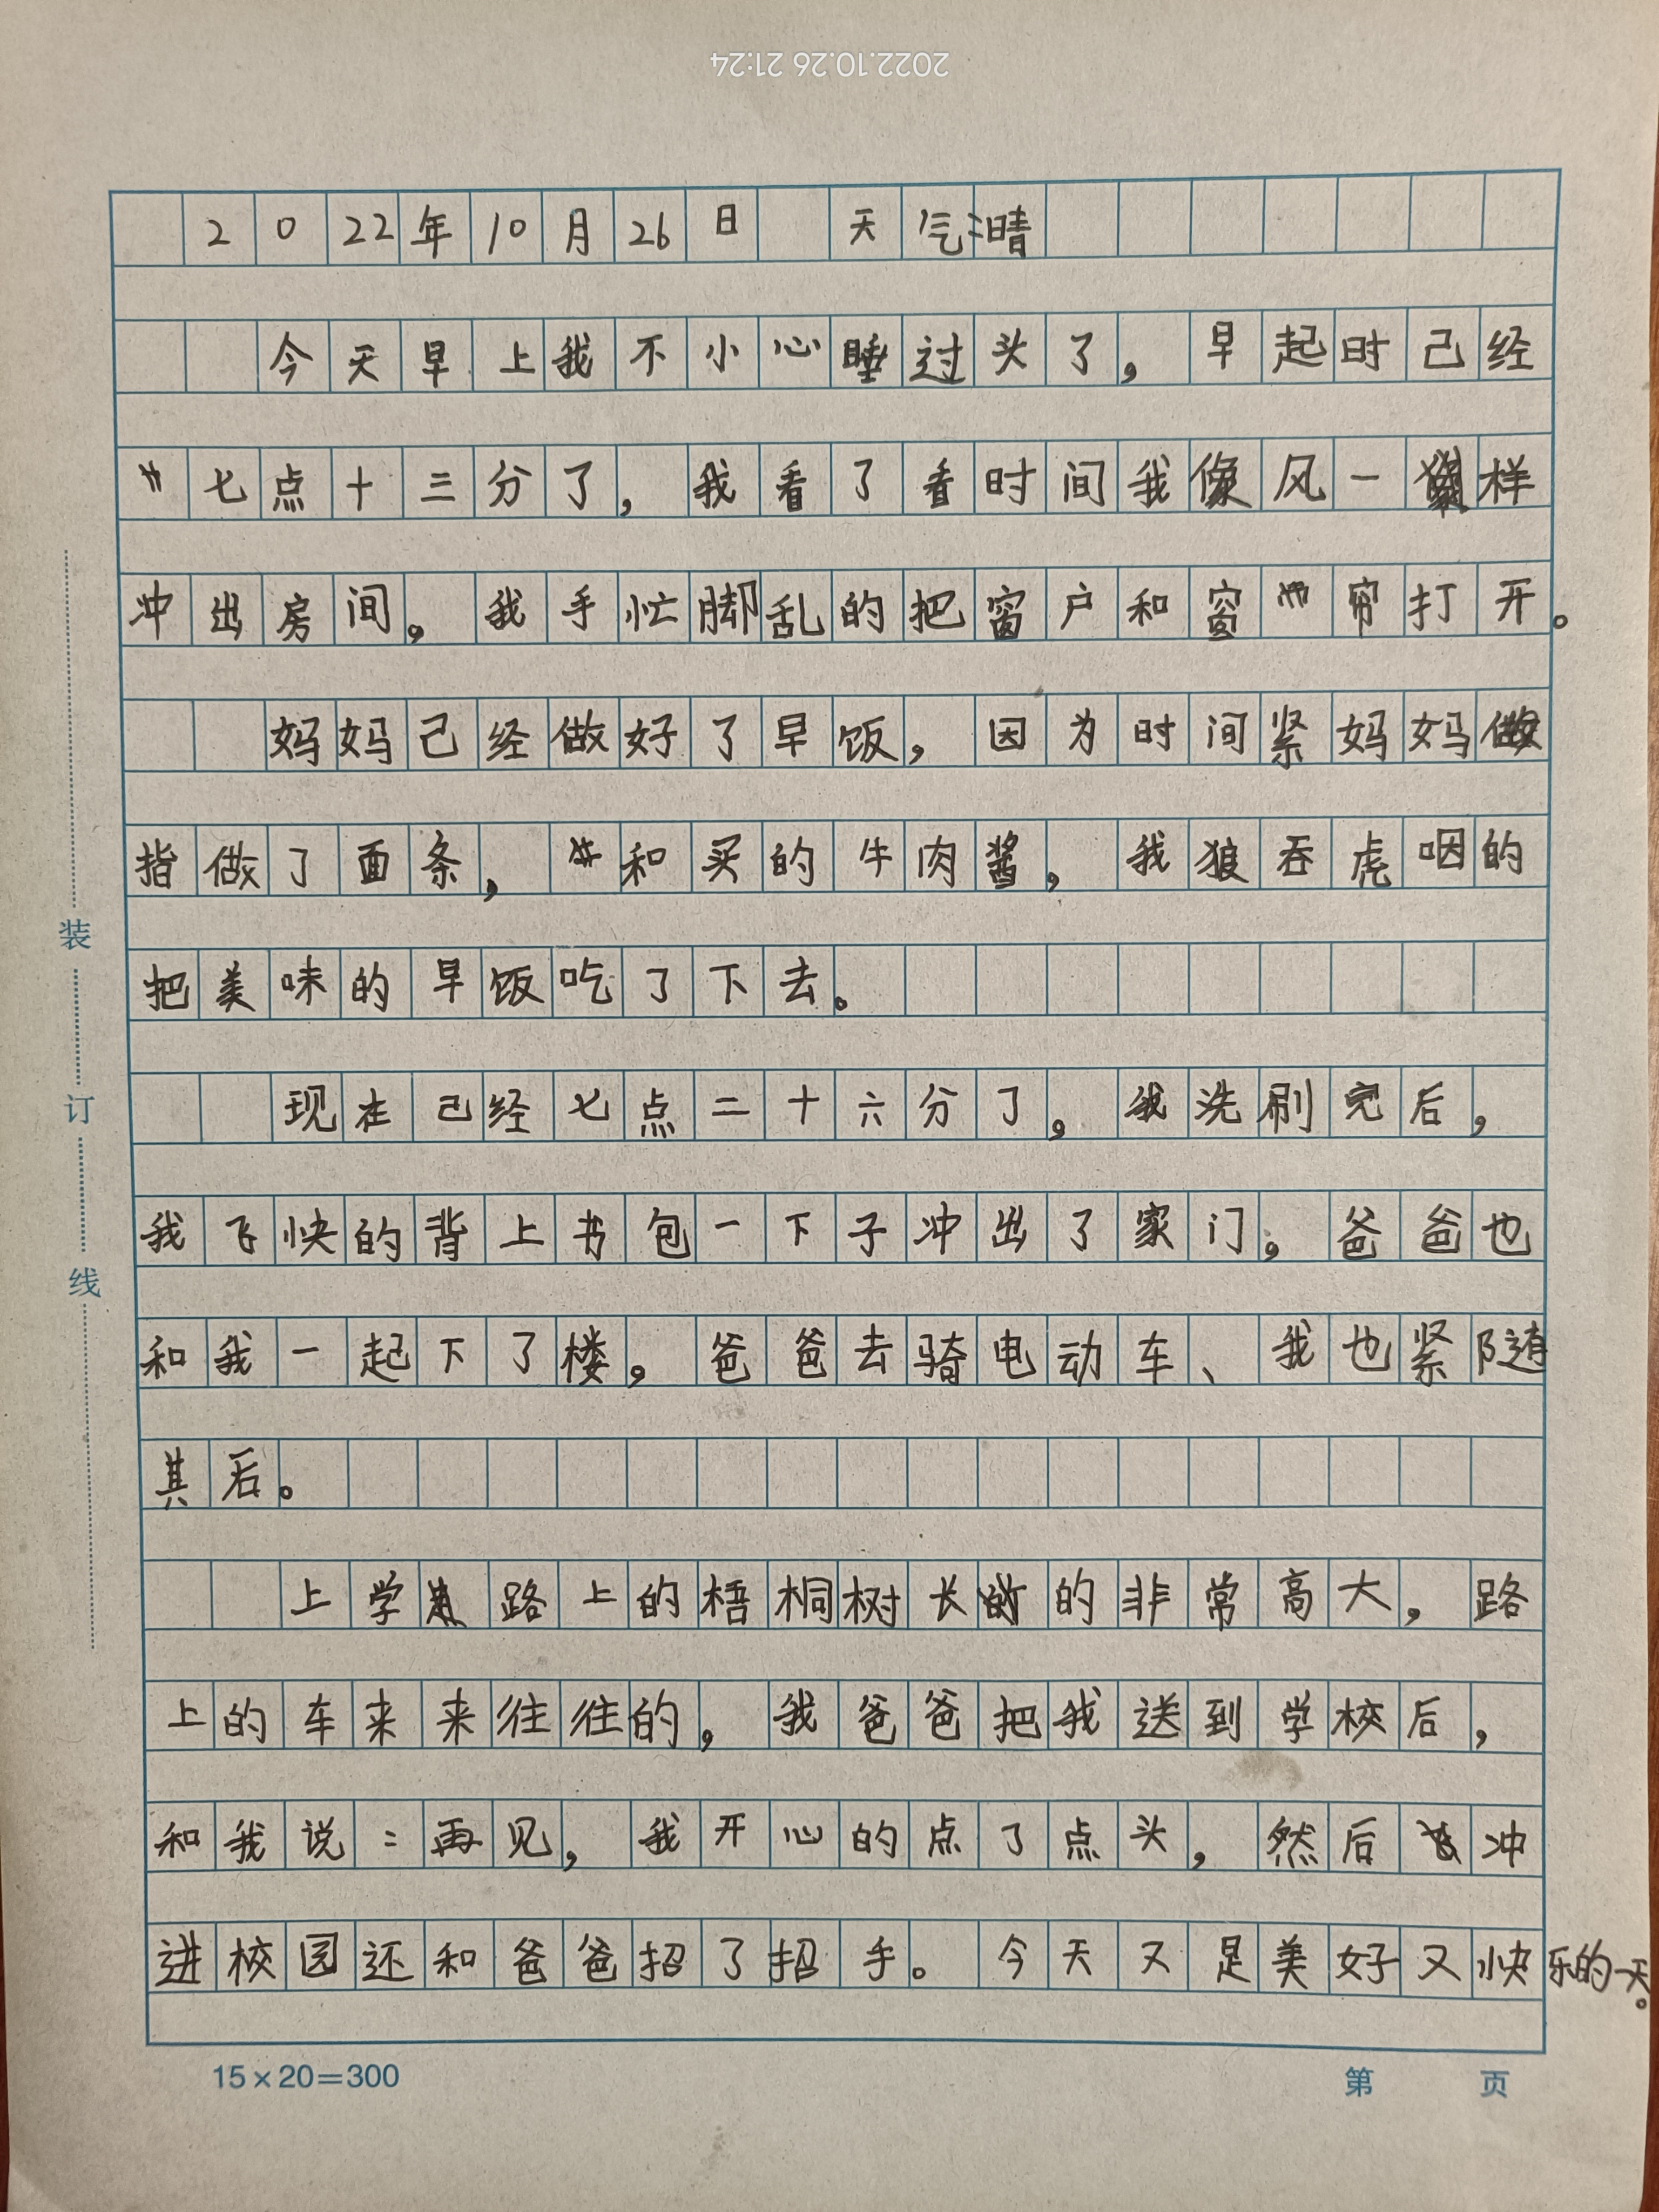 2022.10.26 21:24
2022年10月26日 天气:晴
今天早上我不小心睡过头了，早起时己经
七点十三分了，我看了看时间我像风一样
冲出房间。我手忙脚乱的把窗户和窗帘打开。
妈妈己经做好了早饭，因为时间紧妈妈做
指做了面条，和买的牛肉酱，我狼吞虎咽的
把美味的早饭吃了下去。
现在己经七点二十六分了，我洗刷完后，
我飞快的背上书包一下子冲出了家门。爸爸也
和我一起下了楼，爸爸去骑电动车、我也紧随
其后。
上学路上的梧桐树长的非常高大，路
上的车来来往往的，我爸爸把我送到学校后，
和我说：再见，我开心的点了点头，然后冲
进校园还和爸爸招了招手。今天又是美好又快乐的一天。
装
订
线
15×20=300
第 页